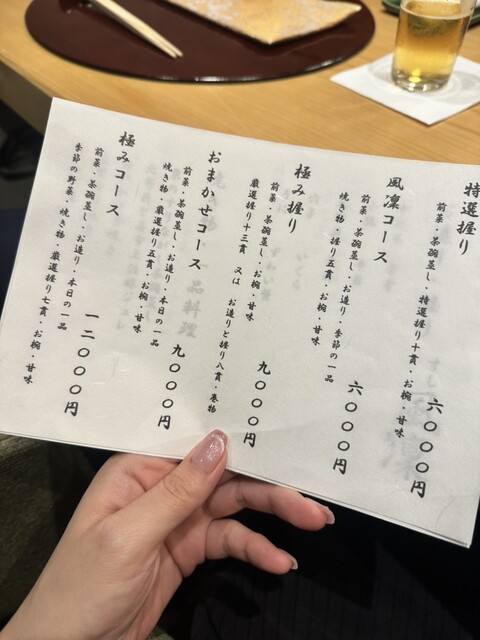 特選握り
前菜・茶碗蒸し・特選握り十貫・お椀・甘味
六〇〇〇円
風凛コース
前菜・茶碗蒸し・お造り・季節の一品
焼き物・握り五貫・お椀・甘味
六〇〇〇円
極み握り
前菜・茶碗蒸し・お椀・甘味
厳選握り十三貫 又は お造りと握り八貫・巻物
九〇〇〇円
おまかせコース
前菜・茶碗蒸し・お造り・本日の一品
焼き物・厳選握り五貫・お椀・甘味
九〇〇〇円
極みコース
前菜・茶碗蒸し・お造り・本日の一品
季節の野菜・焼き物・厳選握り七貫・お椀・甘味
一二〇〇〇円
一品料理